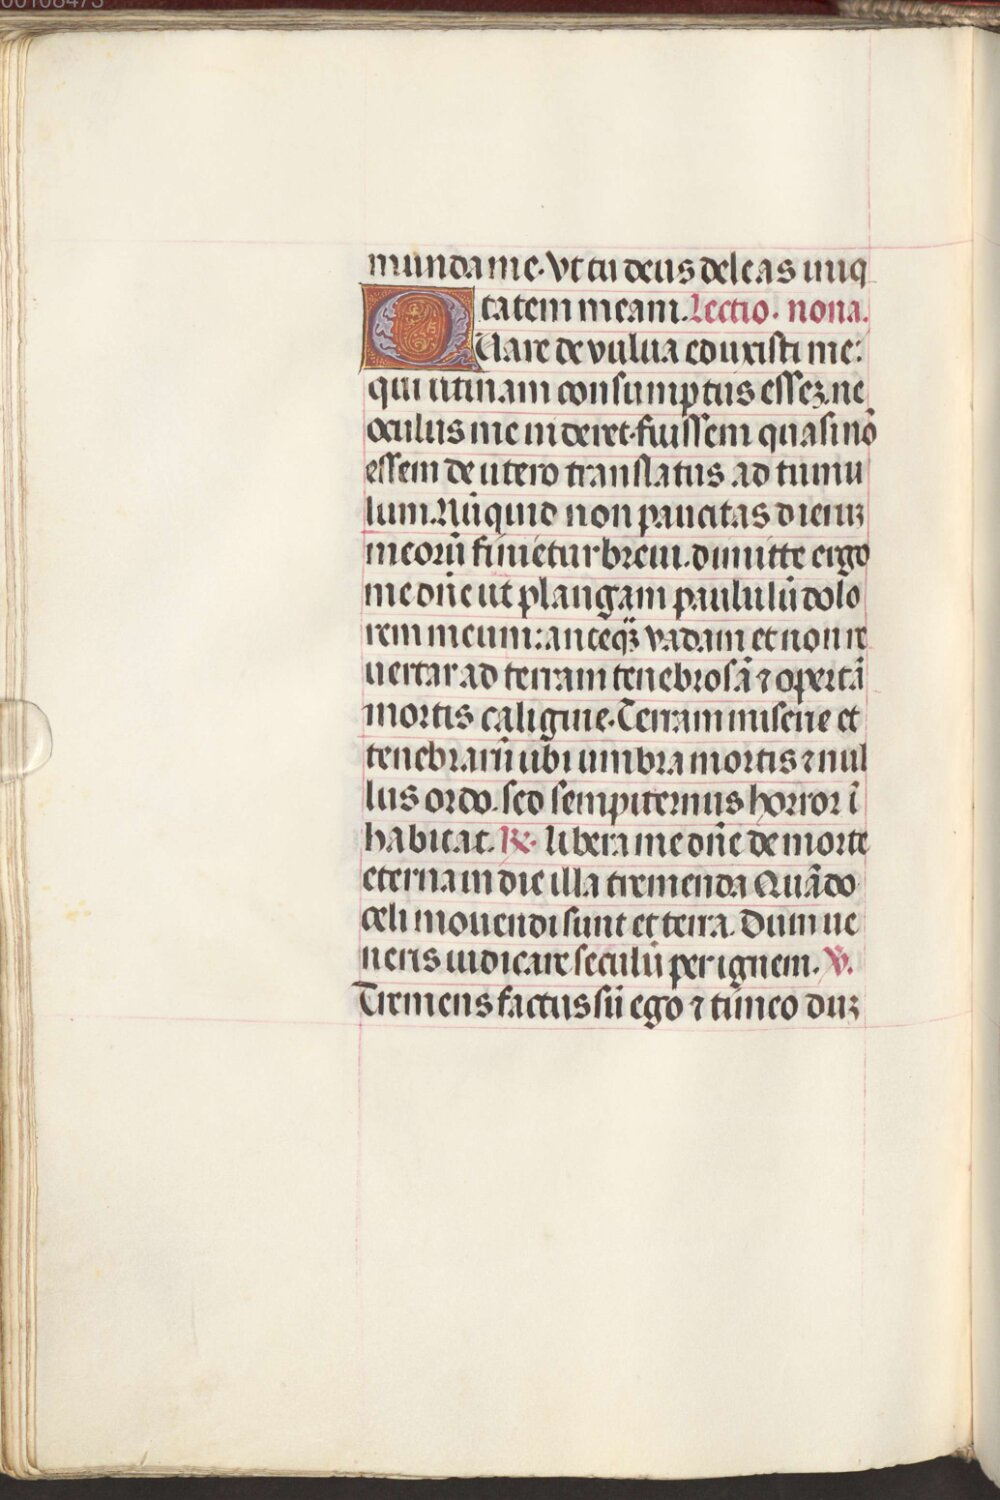 munda me. Vt tu deus deleas iniq
tatem meam. Lectio. nona.
QUare de vulua eduxisti me:
qui utinam consumptus essez ne
oculus me uideret. fuissem quasi nō
essem de utero translatus ad tumu
lum. Nūquid non paucitas dieruz
meorū finietur breui. dimitte ergo
me dn̄e ut plangam paululū dolo
rem meum: anteqȝ̄ vadam et non re
uertar ad terram tenebrosā ⁊ opertā
mortis caligine. Terram miserie et
tenebrarū ubi umbra mortis ⁊ nul
lus ordo. sed sempiternus horror ī
habitat. ℟. Libera me dn̄e de morte
eterna in die illa tremenda Quādo
celi mouendi sunt et terra. Dum ue
neris iudicare seculū per ignem. ℣.
Tremens factus sū ego ⁊ timeo duz